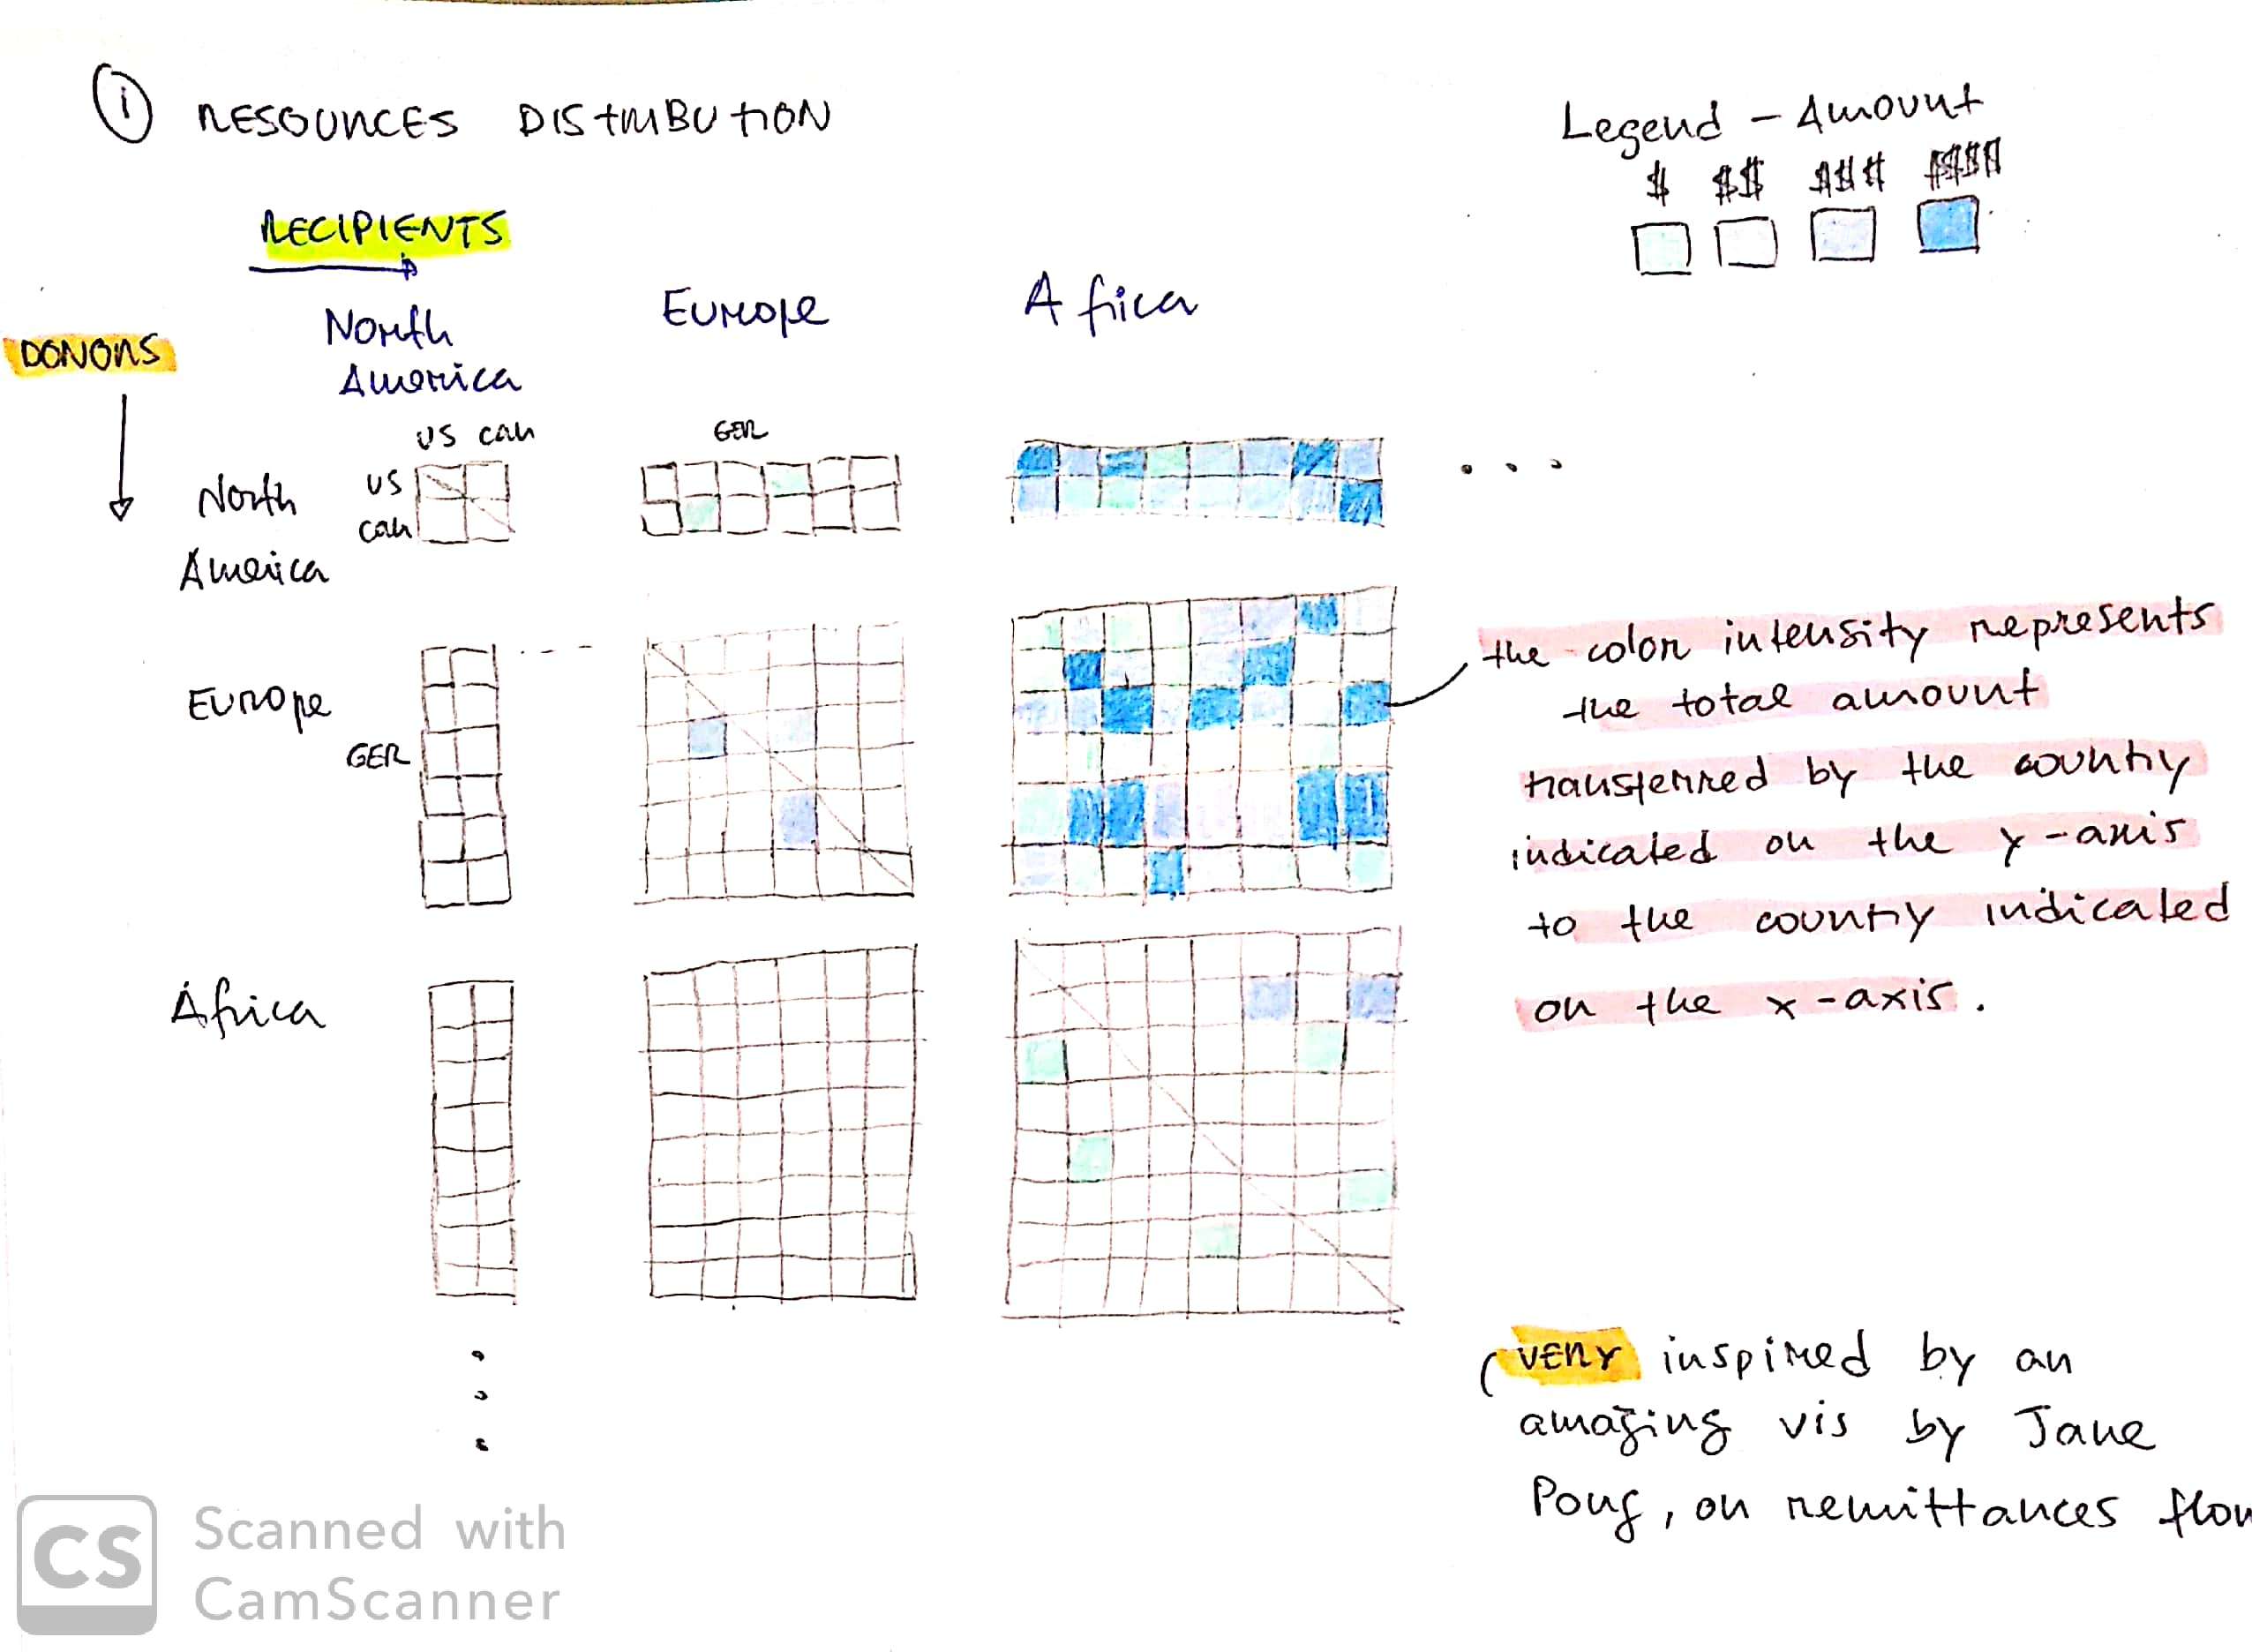 1 RESOURCES DISTRIBUTION
Legend - Amount
$ $$ $$$ $$$$
RECIPIENTS
DONORS
North America
Europe
Africa
US can
GER
North America
US
can
...
Europe
GER
Africa
the color intensity represents
the total amount
transferred by the country
indicated on the y-axis
to the country indicated
on the x-axis.
(VERY inspired by an
amazing vis by Jane
Pong, on remittances flow
CS
Scanned with
CamScanner